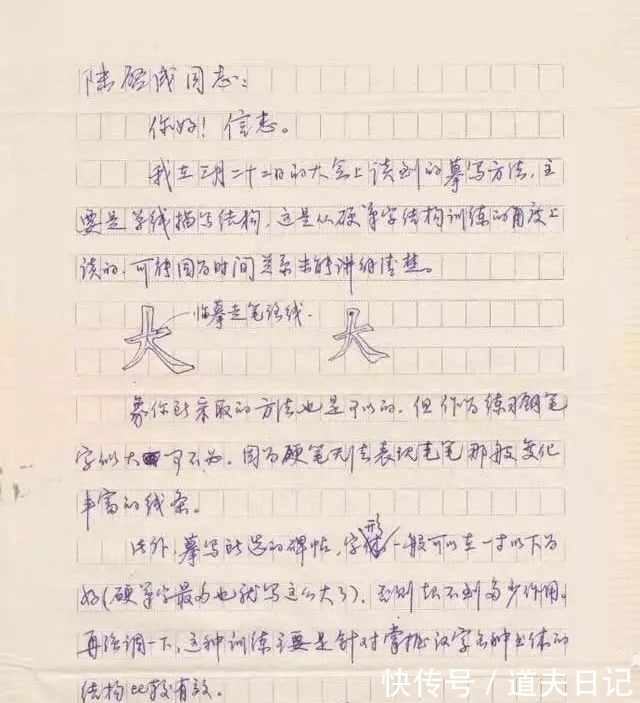 陆啓成同志：
你好！信悉。
我在三月二十二日的大会上谈到的摹写方法，主
要是单线描写结构，这是从硬笔字结构训练的角度上
谈的，可能因为时间关系未能讲好清楚。
大 临摹走笔路线． 大
象你所采取的方法也是可以的，但作为练习钢笔
字似大可不必，因为硬笔无法表现毛笔那般变化
丰富的线条。
此外，摹写所选的碑帖，字形一般可以在一寸以下为
好（硬笔字最大也就写这么大了），否则起不到多少作用。
再强调一下，这种训练主要是针对掌握汉字各种书体的
结构比较有效。
快传号／道夫日记